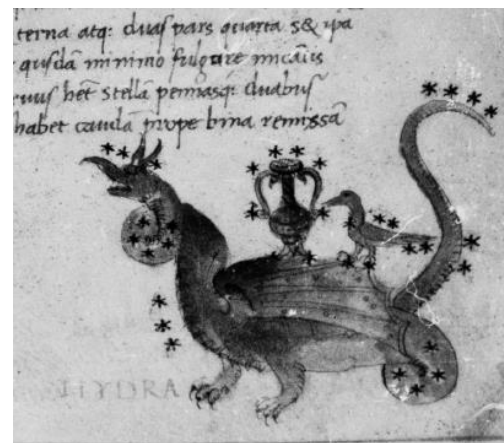 terna atq: duas pars quarta s&
qusdā minimo fulgure micātis
het stellā pennasq: duabus
habet caudā prope bina remissā
HYDRA